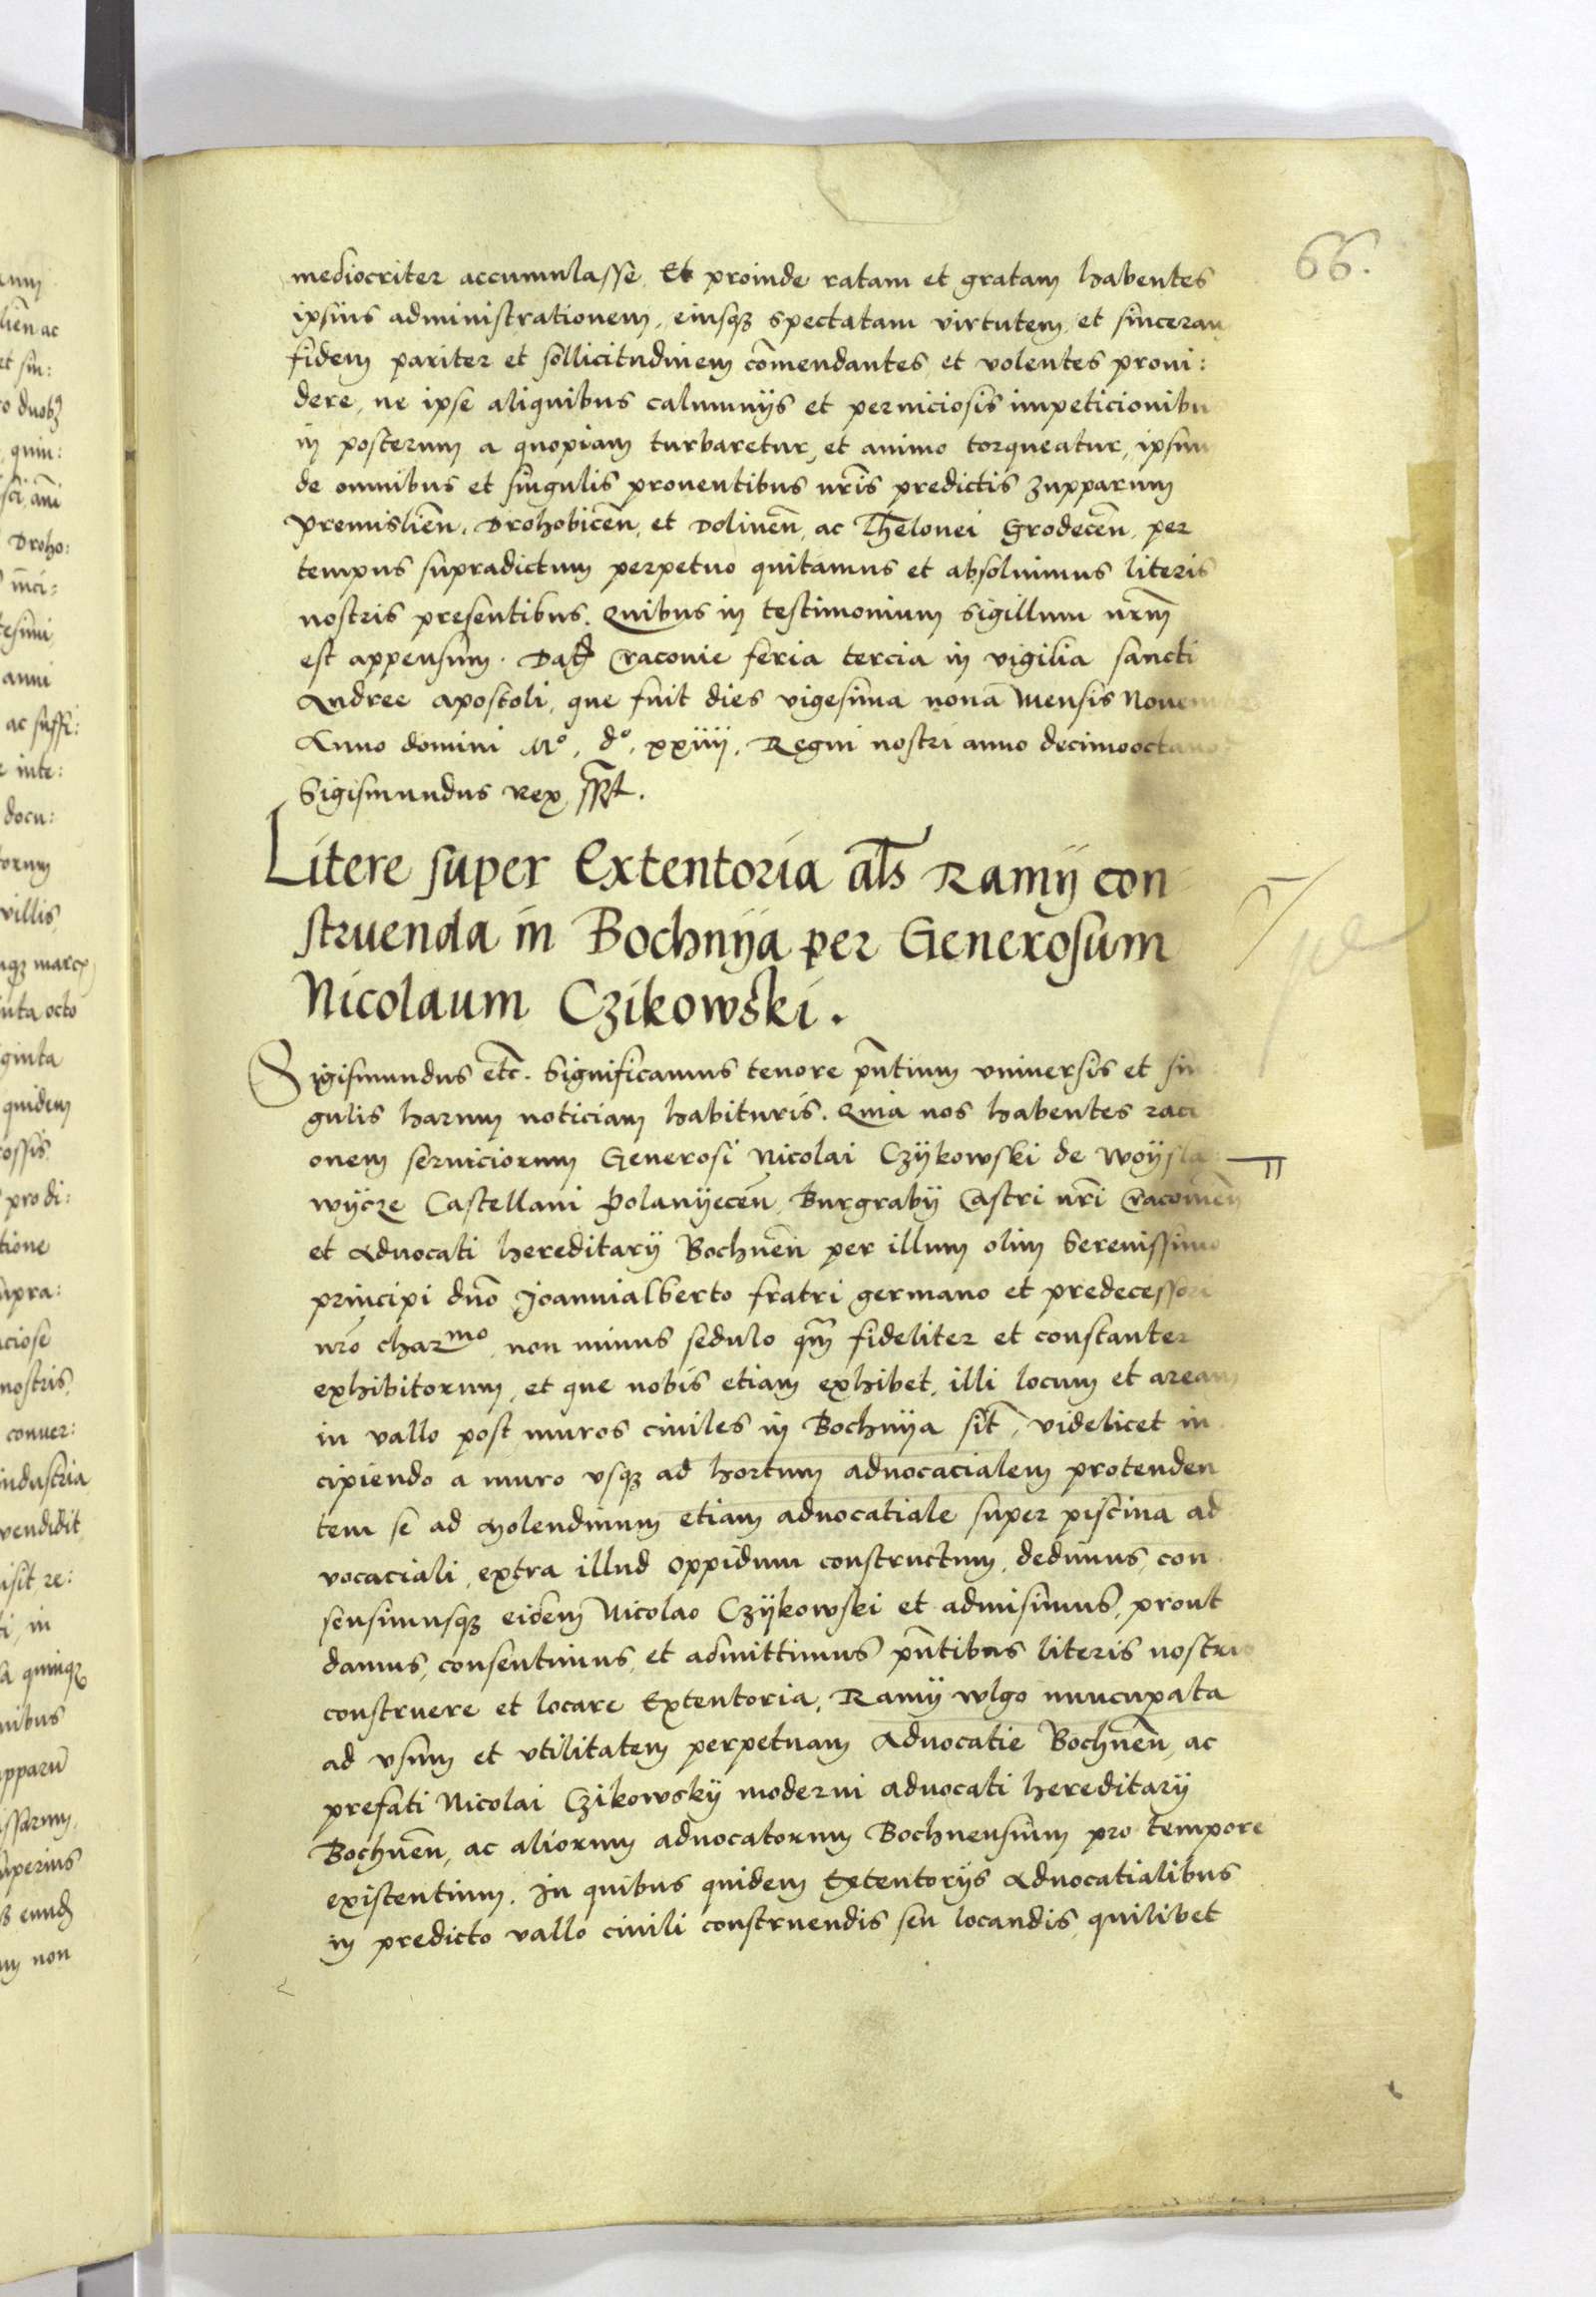 66.
mediocriter accumulasse. Et proinde ratam et gratam habentes
ipsius administrationem, eiusqz spectatam virtutem et sinceram
fidem pariter et sollicitudinem cōmendantes et volentes proui:
dere, ne ipse aliquibus calumnijs et perniciosis impeticionibu
in posterum a quopiam turbaretur, et animo torqueatur, ipsum
de omnibus et singulis prouentibus nr̄is predictis zupparum
Premislien̄. Drohobicen̄, et Dolinen̄, ac Thelonei Grodecen̄, per
tempus supradictum perpetuo quitamus et absoluimus literis
nostris presentibus. Quibus in testimonium sigillum nr̄m
est appensum. Dat̄ Cracouie feria tercia in vigilia sancti
Andree apostoli, que fuit dies vigesima nona Mensis Nouem
Anno domini Mº, dº, xxiiij, Regni nostri anno decimooctauo
Sigismundus Rex sst̄.
Litere super Extentoria al̄s Ramij con
struenda in Bochnija per Generosum
Nicolaum Czikowski.
Sigismundus etc̄. Significamus tenore pn̄tium vniuersis et sin
gulis harum noticiam habituris. Quia nos habentes raci
onem seruiciorum Generosi Nicolai Czijkowski de Woijsla
wijcze Castellani Polanijecen̄, Burgrabij Castri nr̄i Cracouien̄
et Aduocati hereditarij Bochnen̄ per illum olim Serenissimo
principi dn̄o Joannialberto fratri germano et predecessori
nr̄o charmo, non minus sedulo qm̄ fideliter et constanter
exhibitorum, et que nobis etiam exhibet, illi locum et aream
in vallo post muros ciuiles in Bochnija sit̄, videlicet in
cipiendo a muro vsqz ad hortum aduocacialem protenden
tem se ad molendinum etiam aduocatiale super piscina ad
vocaciali, extra illud oppidum constructum, dedimus, con
sensimusqz eidem Nicolao Czijkowski et admisimus, prout
damus, consentimus, et admittimus pn̄tibus literis nostris
construere et locare Extentoria, Ramij wlgo nuncupata
ad vsum et vtilitatem perpetuam Aduocatie Bochnen̄, ac
prefati Nicolai Czikowskij moderni aduocati hereditarij
Bochnen̄, ac aliorum aduocatorum Bochnensium pro tempore
existentium. In quibus quidem Extentorijs Aduocatialibus
in predicto vallo ciuili construendis seu locandis, quilibet